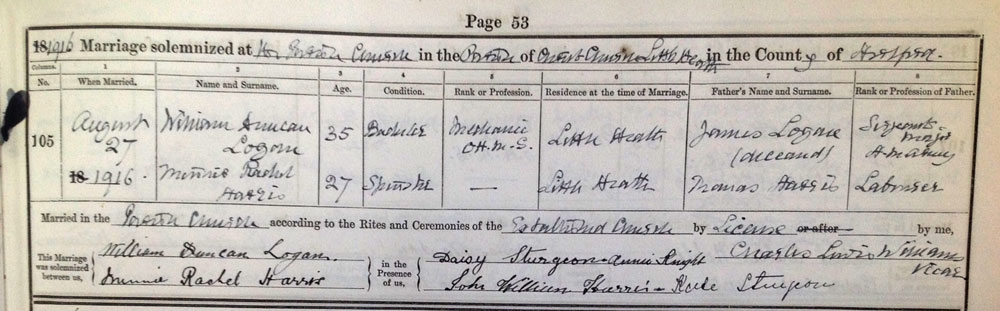 Page 53
1916 Marriage solemnized at the Parish Church in the Parish of Christ Church Little Heath in the County of
Columns. 1 2 3 4 5 6 7 8
No. When Married. Name and Surname. Age. Condition. Rank or Profession. Residence at the time of Marriage. Father's Name and Surname. Rank or Profession of Father.
105 August 27 1916. William Duncan Logan 35 Bachelor Mechanic O.H.M.S. Little Heath James Logan (deceased) Sergeant-Major
Minnie Rachel Harris 27 Spinster — Little Heath Thomas Harris Labourer
Married in the Parish Church according to the Rites and Ceremonies of the Established Church by License or after by me,
This Marriage was solemnized between us, William Duncan Logan. in the Presence of us, Daisy Sturgeon - Annie Knight Charles Lewis Williams Vicar
Minnie Rachel Harris John William Harris - Sturgeon